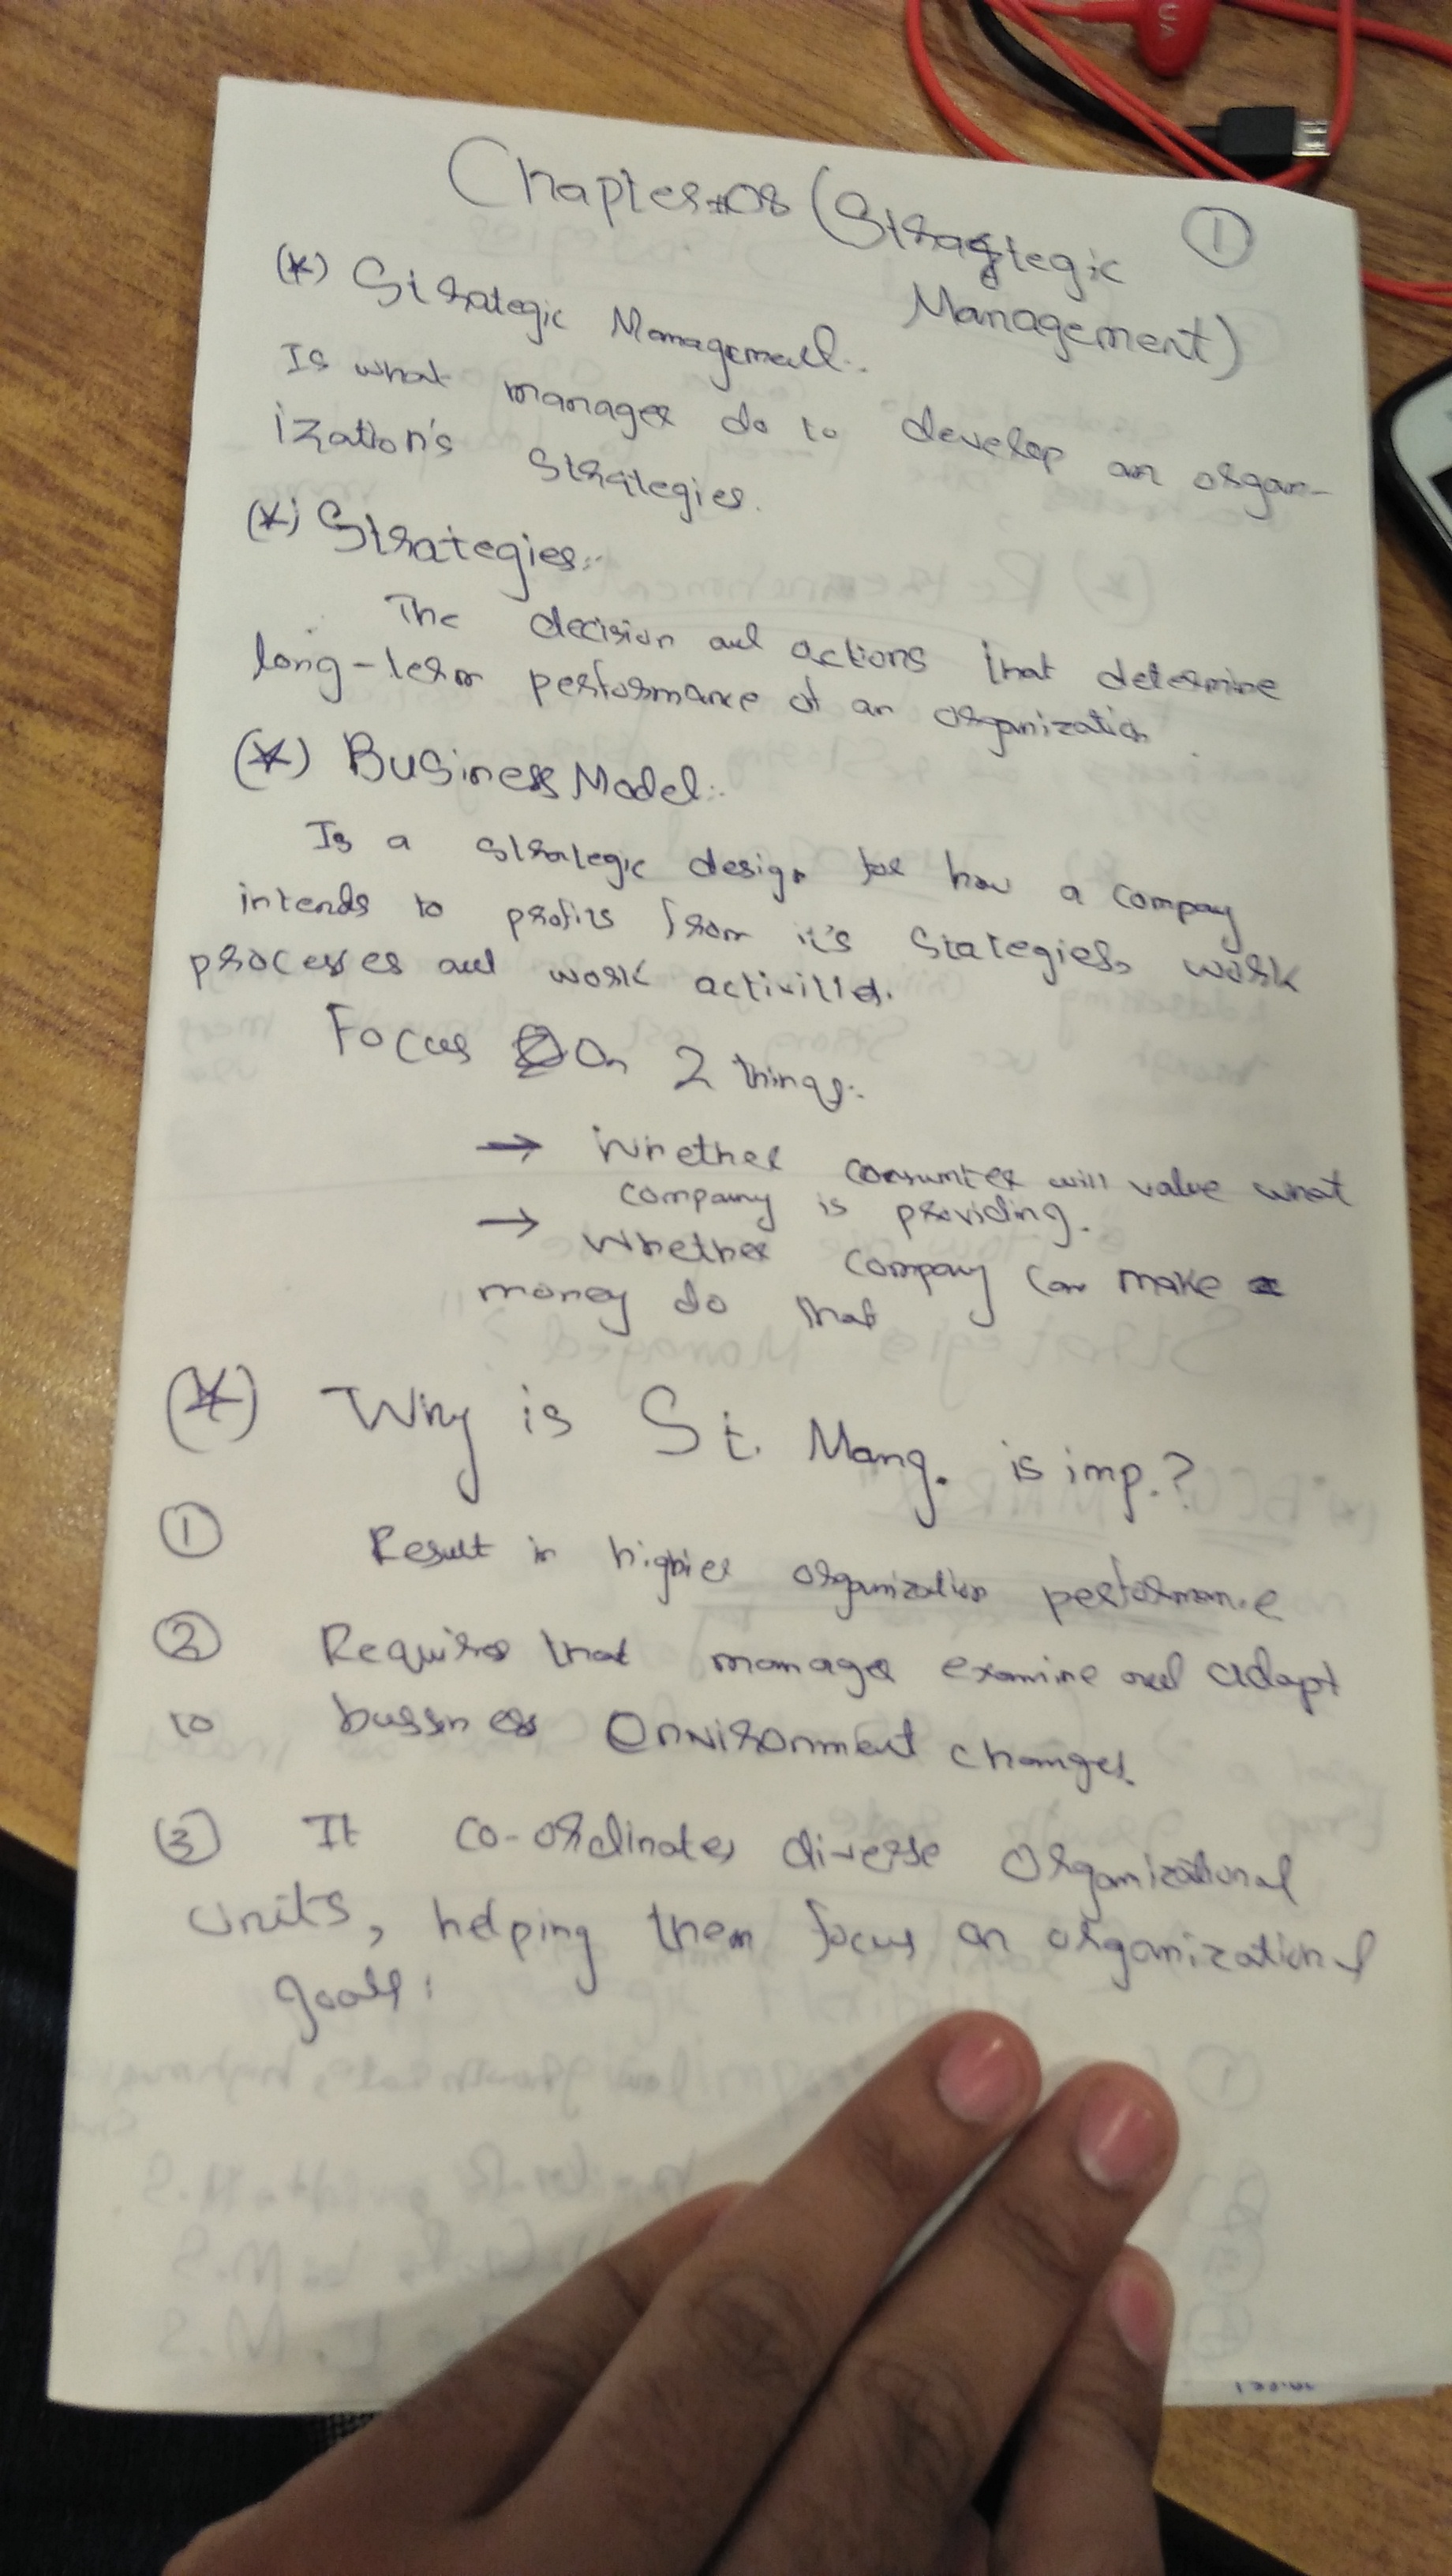 Chapter#08 (Strategic
Management)
1
(*) Strategic Management:.
Is what manager do to develop an organ-
ization's strategies.
(*) Strategies:.
The decision and actions that determine
long-term performance of an organization.
(*) Business Model:.
Is a strategic design for how a company
intends to profits from it's Stategies, work
processes and work activities.
Focus On 2 things:.
→ Whether consumter will value what
company is providing.
→ Whether company can make
money do that
(*) Why is St. Mang. is imp.?
① Result in higher organization performance
② Requires that manager examine and adapt
to bussness environment changes.
③ It co-ordinates diverse organizational
units, helping them focus on organizational
goals.